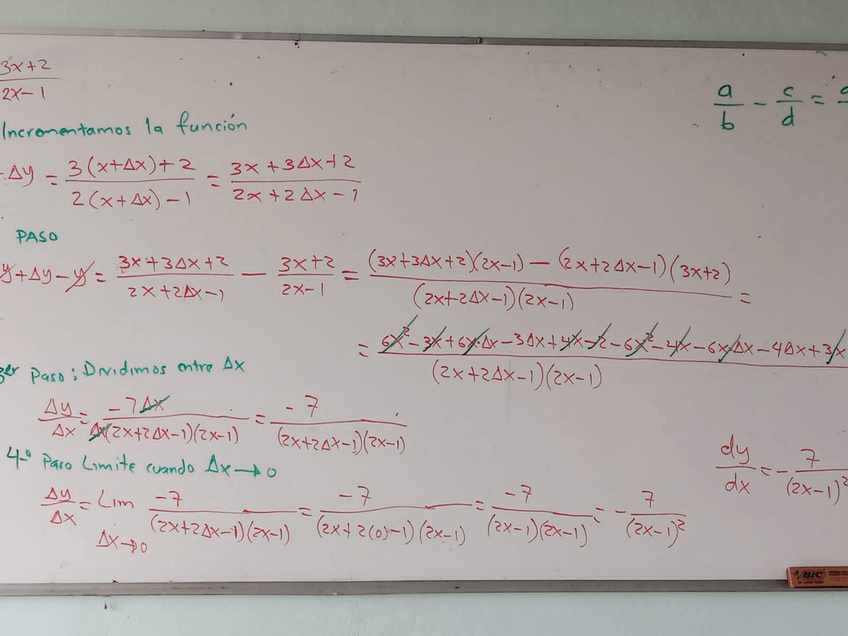 3x+2/2x-1
a/b - c/d =
Incrementamos la función
Δy = 3(x+Δx)+2/2(x+Δx)-1 = 3x+3Δx+2/2x+2Δx-1
PASO
y+Δy-y = 3x+3Δx+2/2x+2Δx-1 - 3x+2/2x-1 = (3x+3Δx+2)(2x-1)-(2x+2Δx-1)(3x+2)/(2x+2Δx-1)(2x-1) =
= 6x²-3x+6x·Δx-3Δx+4x-2-6x²-4x-6xΔx-4Δx+3x/(2x+2Δx-1)(2x-1)
er Paso: Dividimos entre Δx
Δy/Δx = -7Δx/Δx(2x+2Δx-1)(2x-1) = -7/(2x+2Δx-1)(2x-1)
4º Paso Limite cuando Δx→0
Δy/Δx = Lim Δx→0 -7/(2x+2Δx-1)(2x-1) = -7/(2x+2(0)-1)(2x-1) = -7/(2x-1)(2x-1) = -7/(2x-1)²
dy/dx = -7/(2x-1)²
BIC